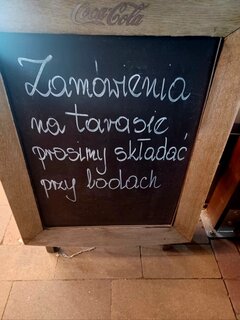 Coca-Cola
Zamówienia
na tarasie
prosimy składać
przy lodach